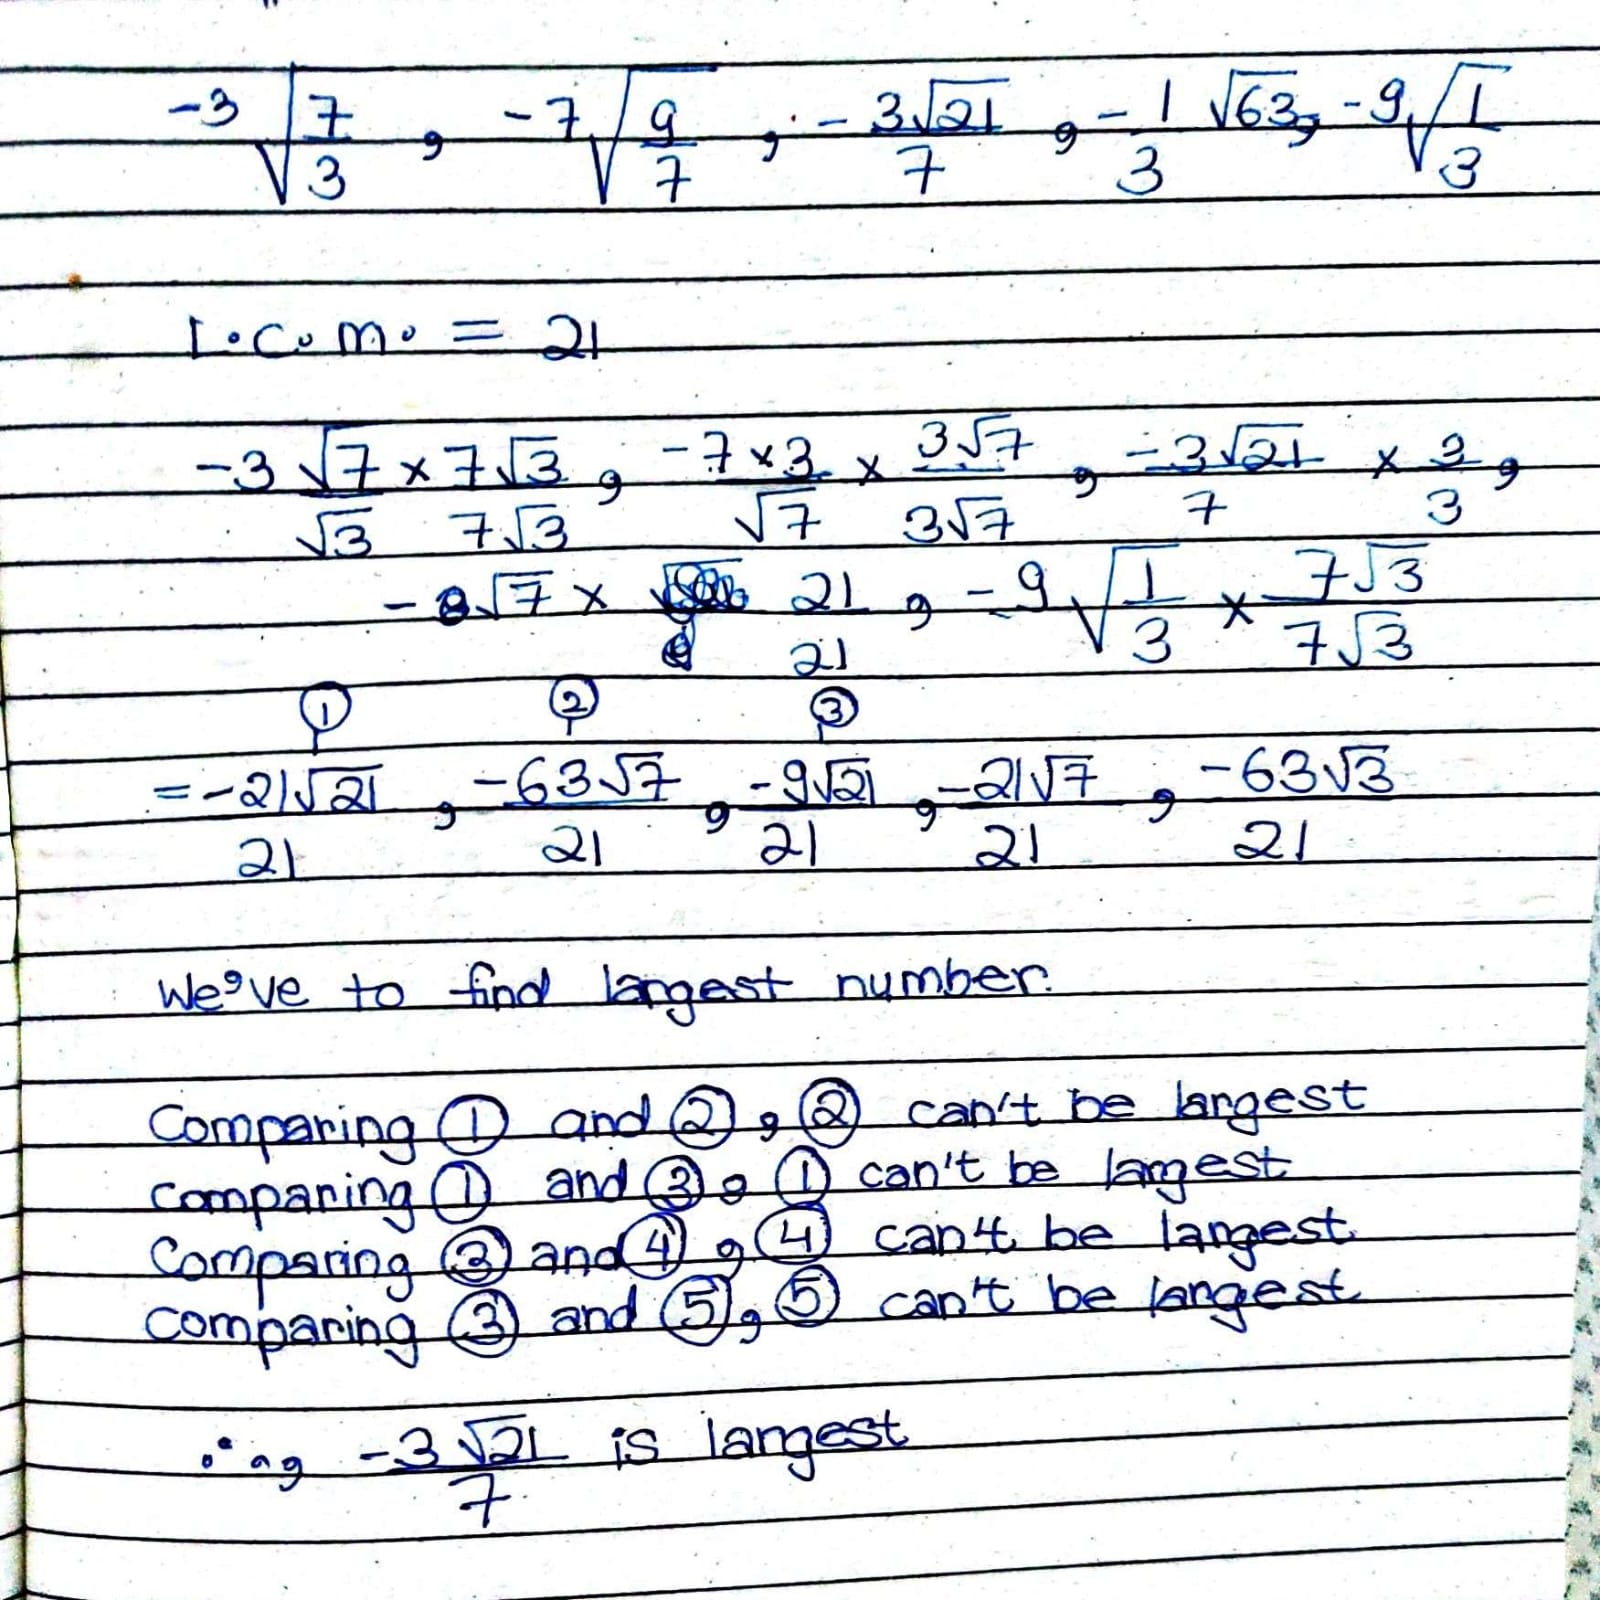 -3√(7/3) , -7√(9/7) , -3√21/7 , -1/3 √63, -9√(1/3)
L.C.M. = 21
-3 √7/√3 × 7√3/7√3 , -7×3/√7 × 3√7/3√7 , -3√21/7 × 3/3 ,
-√7 × 21/21 , -9√(1/3) × 7√3/7√3
① ② ③
= -21√21/21 , -63√7/21 , -9√21/21 , -21√7/21 , -63√3/21
We've to find largest number.
Comparing ① and ② , ② can't be largest
Comparing ① and ③ , ① can't be largest
Comparing ③ and ④ , ④ can't be largest
Comparing ③ and ⑤ , ⑤ can't be largest
∴ , -3√21/7 is largest